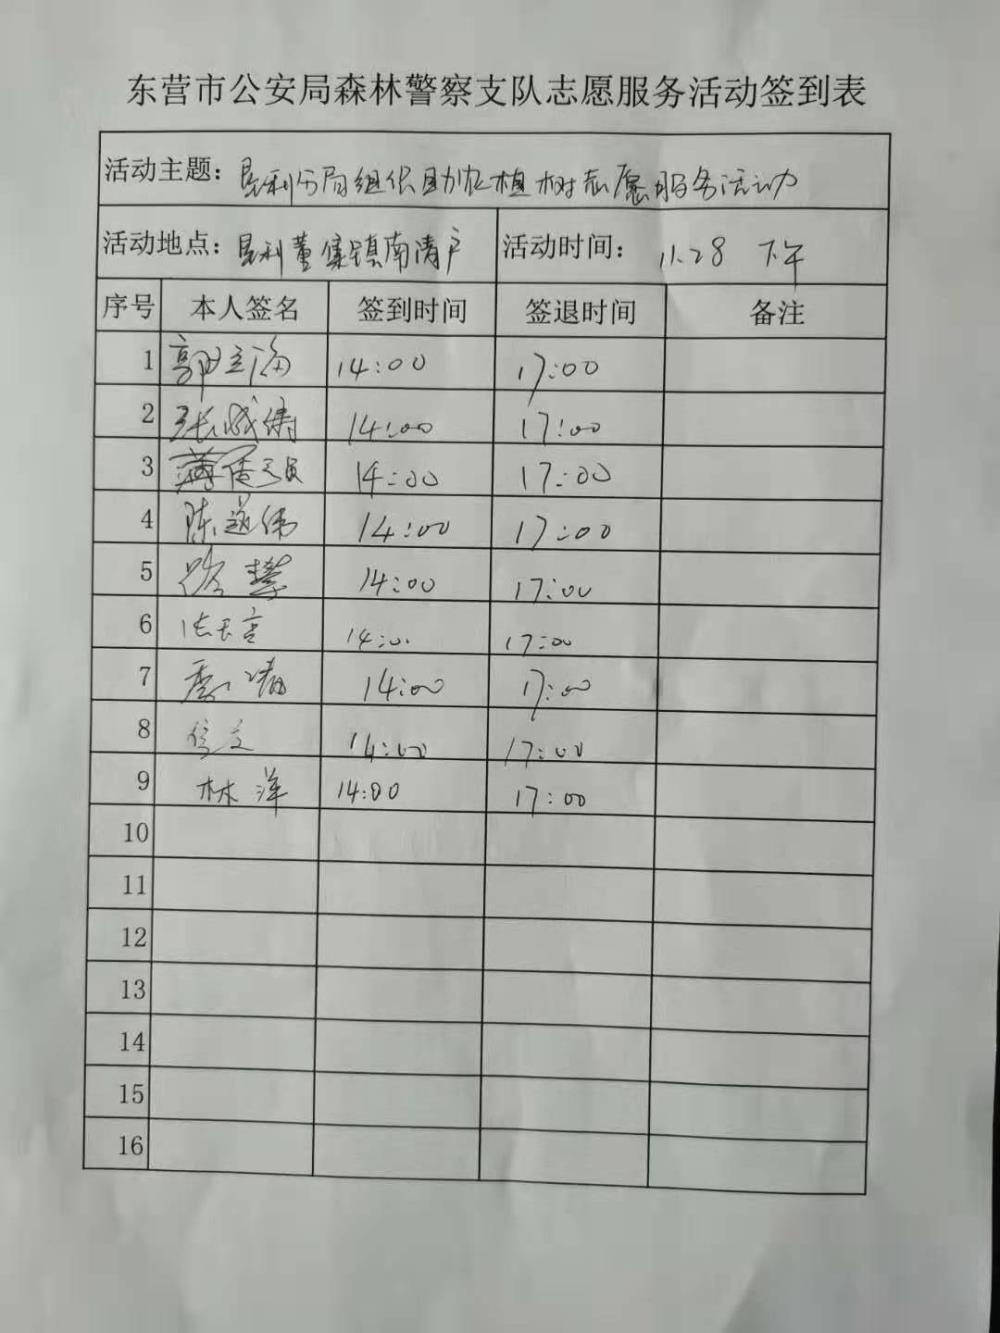 东营市公安局森林警察支队志愿服务活动签到表
活动主题：垦利分局组织助农植树志愿服务活动
活动地点：垦利董集镇南清户 活动时间：11.28 下午
序号 本人签名 签到时间 签退时间 备注
1 14:00 17:00
2 张 14:00 17:00
3 14:00 17:00
4 陈 伟 14:00 17:00
5 路慧 14:00 17:00
6 14:00 17:00
7 14:00 17:00
8 14:00 17:00
9 林洋 14:00 17:00
10
11
12
13
14
15
16